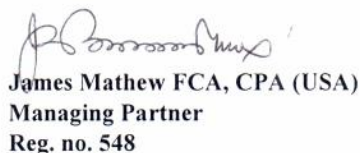 James Mathew FCA, CPA (USA)
Managing Partner
Reg. no. 548